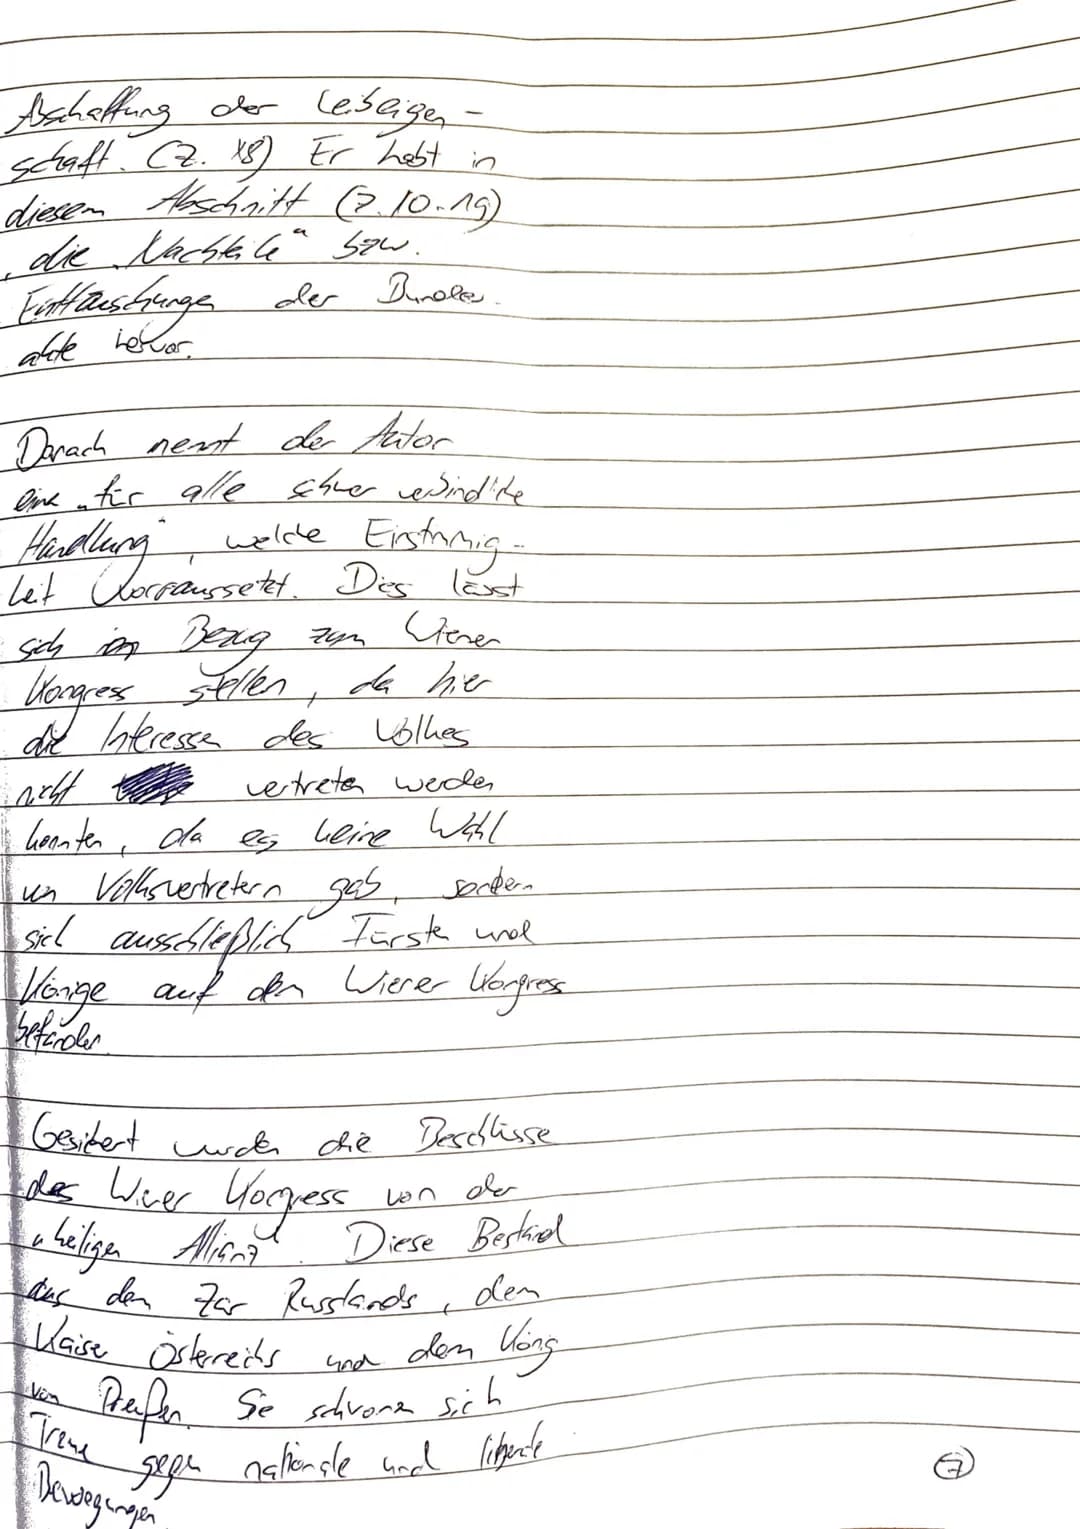 Abschaffung der Leibeigen-
schaft. (Z. 18) Er hebt in
diesem Abschnitt (Z. 10-19)
die „Nachteile“ bzw.
Enttäuschungen der Bundes-
akte hervor.
Danach nennt der Autor
eine „für alle schwer verbindliche
Handlung“, welche Einstimmig-
keit vorraussetzt. Dies lässt
sich in Bezug zum Wiener
Kongress stellen, da hier
die Interessen des Volkes
nicht vertreten werden
konnten, da es keine Wahl
von Volksvertretern gab, sondern
sich ausschließlich Fürsten und
Könige auf dem Wiener Kongress
befanden.
Gesichert wurden die Beschlüsse
des Wiener Kongress von der
„heiligen Allianz“. Diese Bestand
aus dem Zar Russlands, dem
Kaiser Österreichs und dem König
von Preußen. Sie schworen sich
Treue gegen nationale und liberale
Bewegungen
7